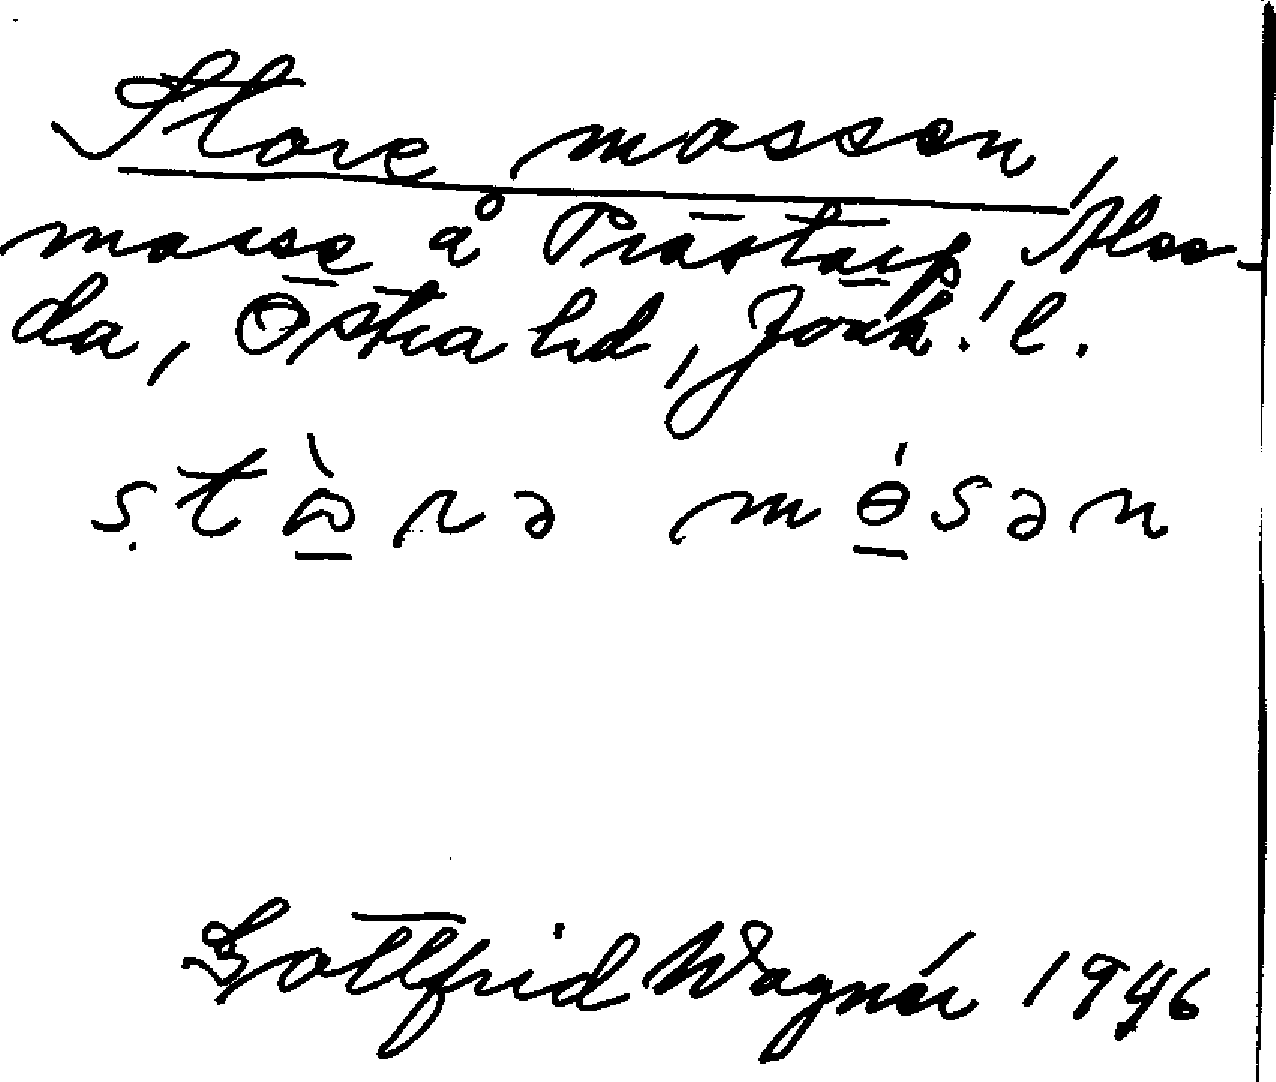 Store mossen,
mosse å Prästarp, Alse-
da, Östra hd, Jönk. l.
stɷ̀rə mɵ́sən
Gottfrid Wagnér 1946